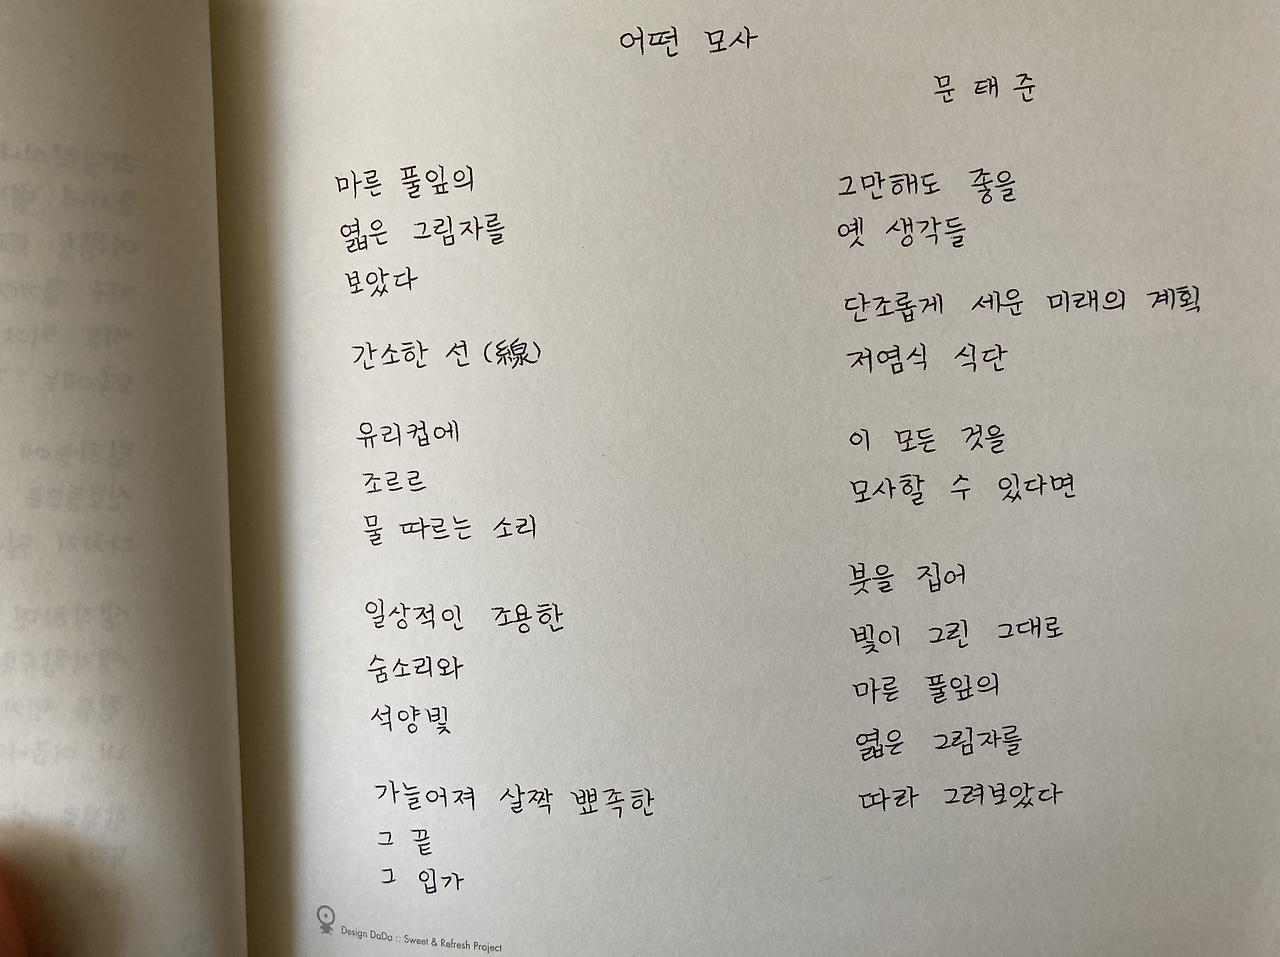 어떤 모사
문태준
마른 풀잎의
엷은 그림자를
보았다
간소한 선(線)
유리컵에
조르르
물 따르는 소리
일상적인 조용한
숨소리와
석양빛
가늘어져 살짝 뾰족한
그 끝
그 입가
그만해도 좋을
옛 생각들
단조롭게 세운 미래의 계획
저염식 식단
이 모든 것을
모사할 수 있다면
붓을 집어
빛이 그린 그대로
마른 풀잎의
엷은 그림자를
따라 그려보았다
Design DaDa :: Sweet & Refresh Project